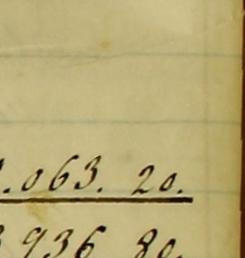 .063. 20.
936 80.